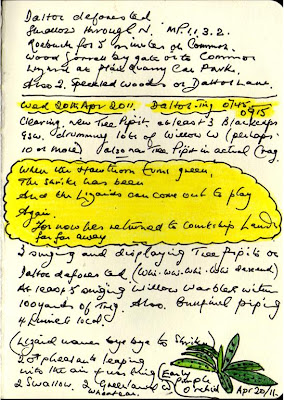 Dalton deforested
Swallow through N. MP. 1. 3. 2.
Roebuck for 5 minutes on Common.
Wood Sorrel by gate onto Common
Lizard at Quarry Car Park.
Also 2 Speckled Woods on Dalton Lane.
Wed 20th Apr 2011. Dalton 0745
0915
Clearing, new Tree Pipit, at least 3 Blackcaps
GSW. drumming lots of Willow W (perhaps
10 or more) also one Tree Pipit in actual
When the Hawthorn turns green,
The Shrike has been
And the Lizards can come out to play
Again.
For now he's returned to courtship Land
far far away
2 singing and displaying Tree Pipits on
Dalton deforested (Whi-whi-whi-whi descend)
At least 5 singing Willow Warblers within
100 yards of Twig. Also. Bullfinch piping
4 Linnets local.
(Lizard waves bye bye to Shrike)
2 ♂ pheasants leaping
into the air & winking
2 Swallow. 2 Greenland
Wheatear.
(Early
purple
orchid)
Apr 20/11.